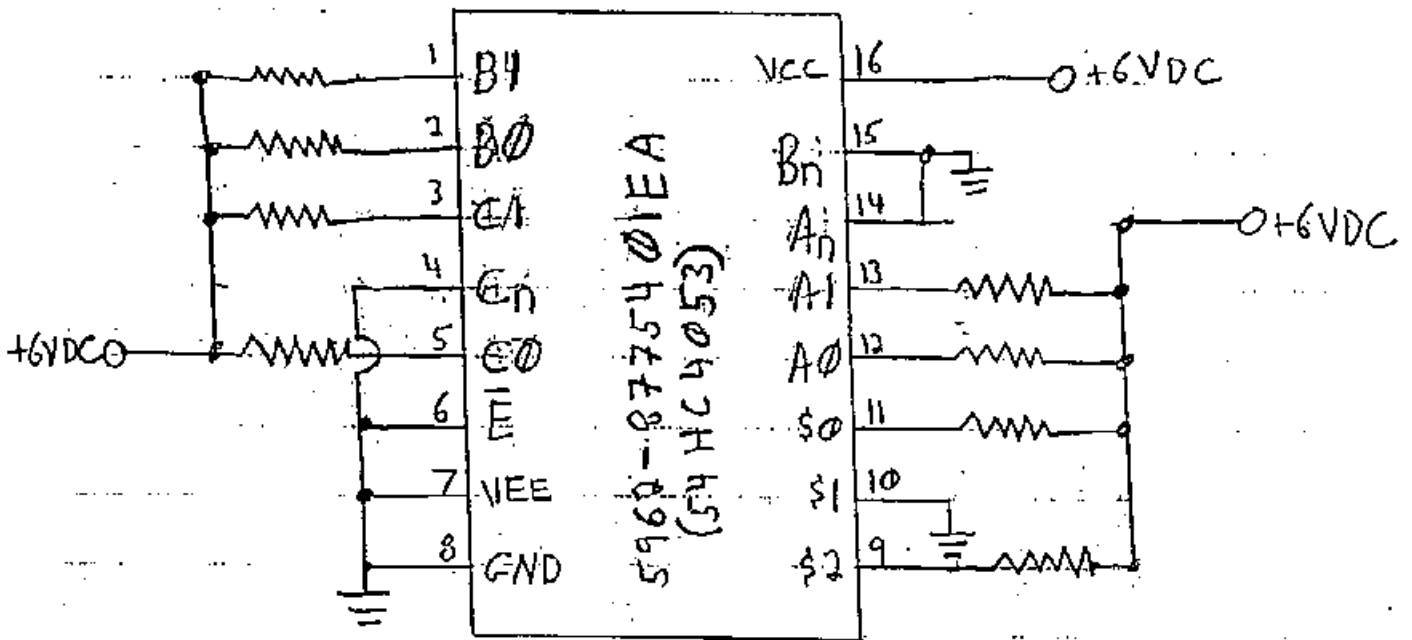 1 B1
2 B0
3 C1
4 Cn
5 C0
6 E̅
7 VEE
8 GND
+6VDC
5962-8775401EA
(54HC4053)
VCC 16 +6VDC
Bn 15
An 14
A1 13
A0 12
S0 11
S1 10
S2 9
+6VDC